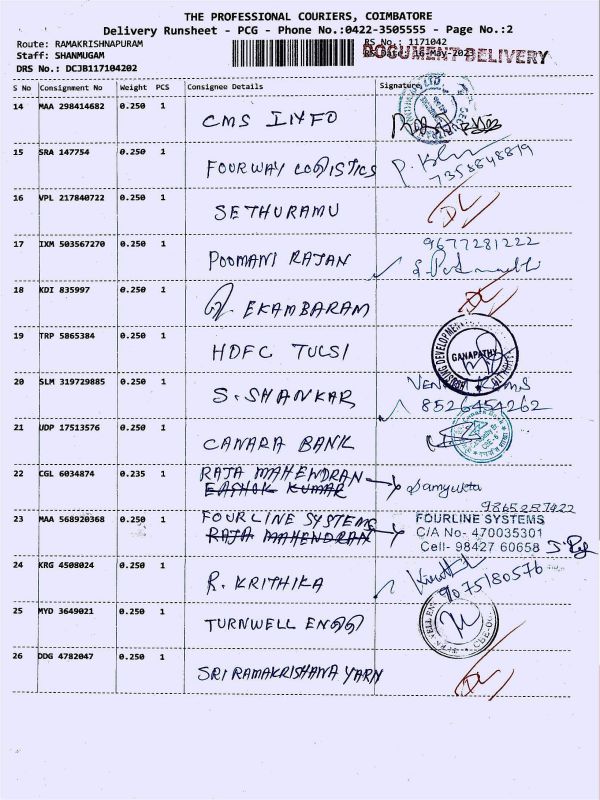 THE PROFESSIONAL COURIERS, COIMBATORE
Delivery Runsheet - PCG - Phone No.:0422-3505555 - Page No.:2
Route: RAMAKRISHNAPURAM
RS No.: 1171042
Staff: SHANMUGAM
RS Date: 16-May-202
DOCUMENT DELIVERY
DRS No.: DCJB117104202
S No Consignment No Weight PCS Consignee Details Signature
14 MAA 298414682 0.250 1 CMS INFO
15 SRA 147754 0.250 1 FOURWAY LOGISTICS
7358848819
16 VPL 217840722 0.250 1 SETHURAMU DL
17 IXM 503567270 0.250 1 POOMANI RAJAN
9677281222
18 KDI 835997 0.250 1 EKAMBARAM DL
19 TRP 5865384 0.250 1 HDFC TULSI
HOUSING DEVELOPMENT
GANAPATHY
20 SLM 319729885 0.250 1 S. SHANKAR
8526454262
21 UDP 17513576 0.250 1 CANARA BANK
22 CGL 6034874 0.235 1 RAJA MAHENDRAN
EASHOK KUMAR
Samyukta
9865257422
23 MAA 568920368 0.250 1 FOURLINE SYSTEMS
RAJA MAHENDRAN
FOURLINE SYSTEMS
C/A No- 470035301
Cell- 98427 60658
24 KRG 4508024 0.250 1 R. KRITHIKA
9075180576
25 MYD 3649021 0.250 1 TURNWELL ENGG
26 DDG 4782047 0.250 1 SRI RAMAKRISHANA YARN DL